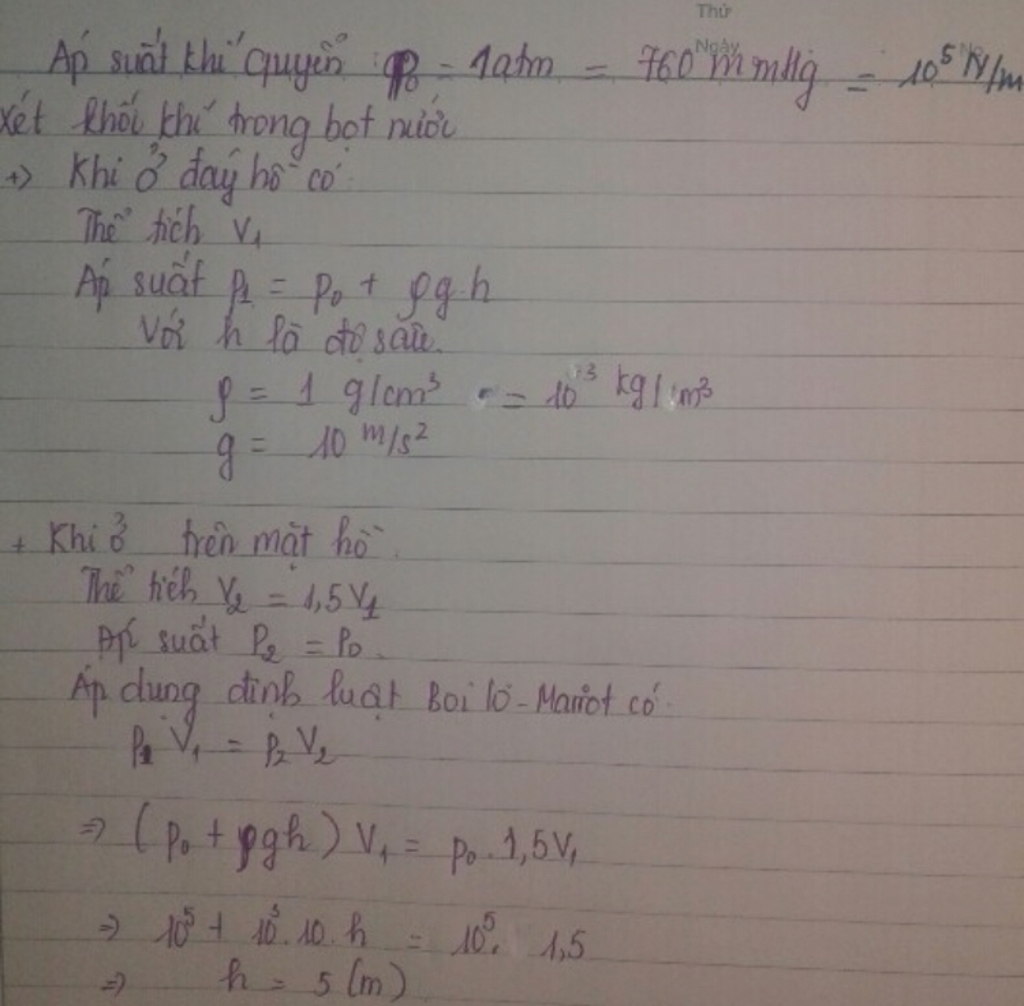 Thứ
Ngày
No
Áp suất khí quyển p₀ = 1atm = 760 mmHg = 10⁵ N/m
Xét khối khí trong bọt nước
+> Khi ở đáy hồ có
Thể tích V₁
Áp suất p₁ = p₀ + ρg.h
Với h là độ sâu.
ρ = 1 g/cm³ = 10³ kg/m³
g = 10 m/s²
+ Khi ở trên mặt hồ.
Thể tích V₂ = 1,5V₁
Áp suất P₂ = P₀.
Áp dụng định luật Bôi lơ - Mariot có
p₁ V₁ = p₂ V₂
=> (p₀ + ρgh) V₁ = p₀.1,5V₁
=> 10⁵ + 10³.10.h = 10⁵. 1,5
=> h = 5 (m)